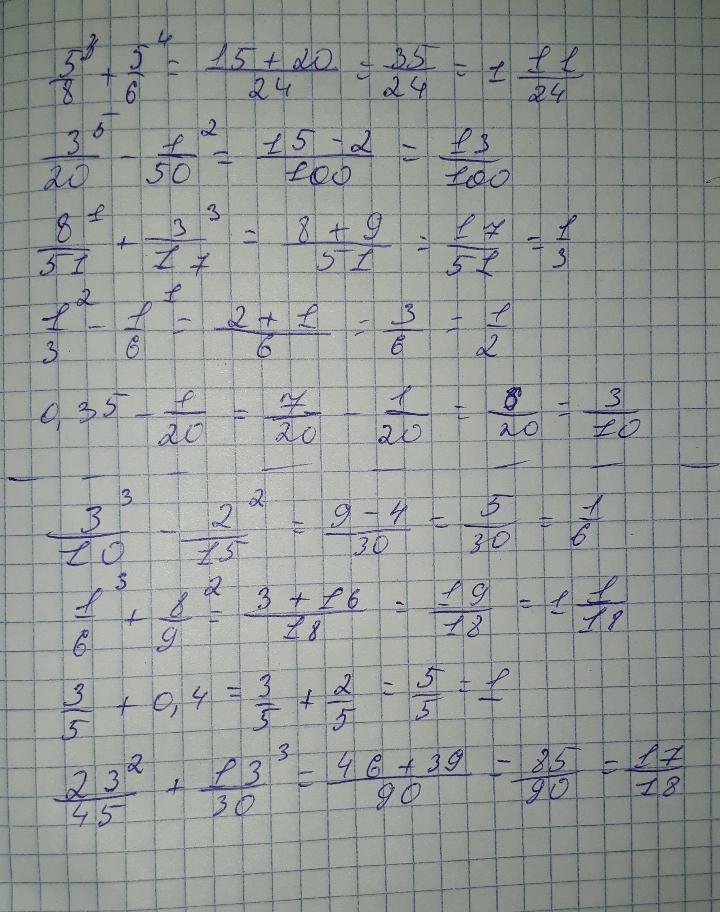 5/8³ + 5/6⁴ = 15 + 20/24 = 35/24 = 1 11/24
3/20⁵ - 1/50² = 15 - 2/100 = 13/100
8/51¹ + 3/17³ = 8 + 9/51 = 17/51 = 1/3
1/3² - 1/6¹ = 2 + 1/6 = 3/6 = 1/2
0,35 - 1/20 = 7/20 - 1/20 = 6/20 = 3/10
3/10³ - 2/15² = 9 - 4/30 = 5/30 = 1/6
1/6³ + 8/9² = 3 + 16/18 = 19/18 = 1 1/18
3/5 + 0,4 = 3/5 + 2/5 = 5/5 = 1
23/45² + 13/30³ = 46 + 39/90 = 85/90 = 17/18